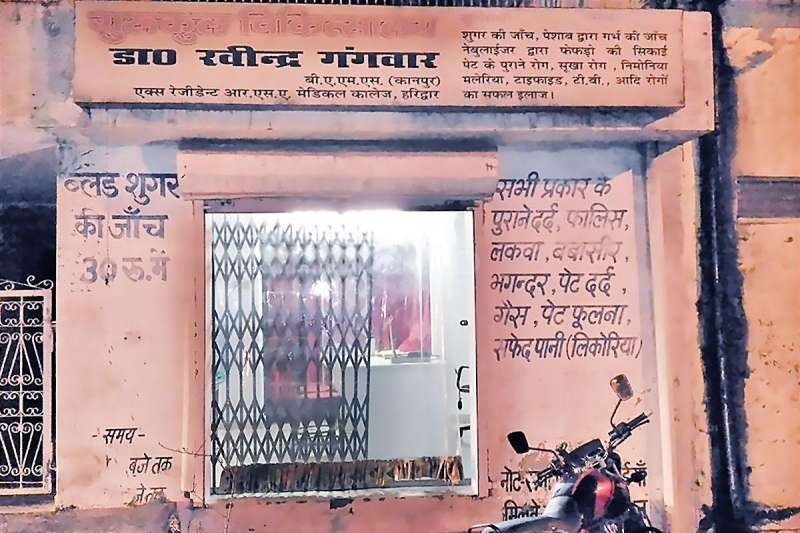 चिकित्सालय
डा० रवीन्द्र गंगवार
बी.ए.एम.एस. (कानपुर)
एक्स रेजीडेन्ट आर.एस.ए. मेडिकल कालेज, हरिद्वार
शुगर की जाँच, पेशाब द्वारा गर्भ की जाँच
नेबुलाईजर द्वारा फेफड़ो की सिकाई
पेट के पुराने रोग, सूखा रोग , निमोनिया
मलेरिया, टाइफाइड, टी.वी., आदि रोगों
का सफल इलाज।
ब्लड शुगर
की जाँच
30 रु.में
सभी प्रकार के
पुराने दर्द, फालिस,
लकवा, बबासीर,
भगन्दर, पेट दर्द ,
गैस , पेट फूलना,
सफेद पानी (लिकोरिया)
- समय -
बजे तक
बजे तक
नोट-